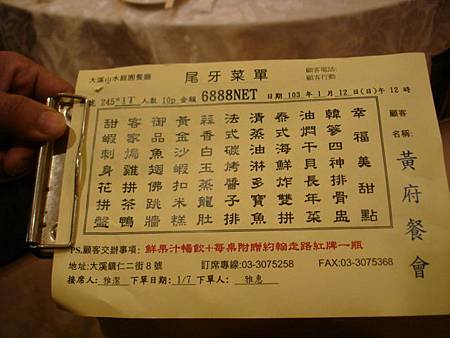 大溪山水庭園餐廳
尾牙菜單
顧客電話:
顧客行動:
號 245*1T 人數 10p 金額 6888NET 日期 103 年 1 月 12 日(日)午 12 時
顧客名稱: 黃府餐會
幸福美甜點
韓蔘四神排骨盅
油燜干貝長年菜
泰式海鮮炸雙拼
清蒸多寶魚
法式碳烤醬子排
蒜香白玉蒸龍
黃金沙蝦扣米糕
御品魚翅佛跳牆
客家燜雞拼茶鴨
甜蝦刺身花拼盤
PS.顧客交辦事項: 鮮果汁暢飲+每桌附贈約翰走路紅牌一瓶
地址:大溪鎮仁二街 8 號 訂席專線:03-3075258 FAX:03-3075368
接席人: 雅潔 下單日期: 1/7 下單人: 雅惠